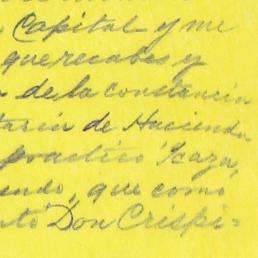 Capital y me
que recabes y
de la constancia
taria de Hacienda
practicó Icaza,
endo, que como
to Don Crispi=